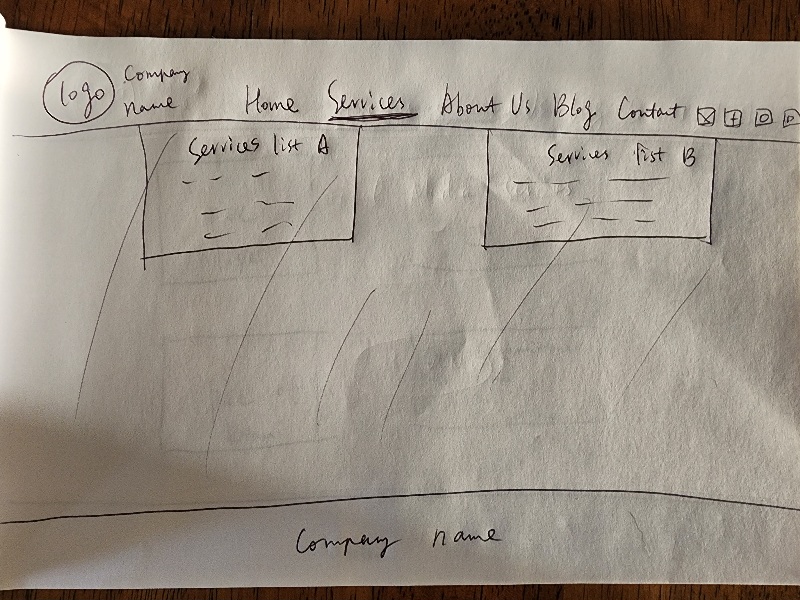 logo
Company
name
Home Services About Us Blog Contact
Services list A
Services list B
Company name